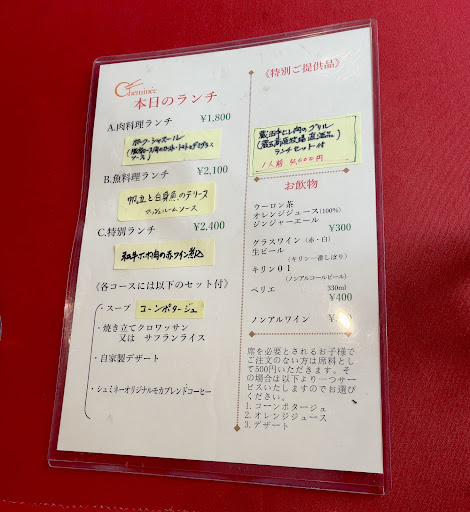 Cheminée
本日のランチ
A.肉料理ランチ ¥1,800
ポーク・シャスール
ソース)
B.魚料理ランチ ¥2,100
帆立と白身魚のテリーヌ
マッシュルームソース
C.特別ランチ ¥2,400
和牛ホホ肉の赤ワイン煮込
《各コースには以下のセット付》
・スープ コーンポタージュ
・焼き立てクロワッサン
又は サフランライス
・自家製デザート
・シュミネーオリジナルモカブレンドコーヒー
《特別ご提供品》
蔵王牛ヒレ肉のグリル
(蔵王高原牧場直送品)
ランチセット付
1人前 4,000円
お飲物
ウーロン茶
オレンジジュース(100%)
ジンジャーエール
¥300
グラスワイン (赤・白)
生ビール
(キリン一番しぼり)
キリン01
(ノンアルコールビール)
ペリエ 330ml
¥400
ノンアルワイン
席を必要とされるお子様で
ご注文のない方は席料とし
て500円いただきます。そ
の場合は以下より一つサー
ビスいたしますのでお選び
ください。
1.コーンポタージュ
2.オレンジジュース
3.デザート